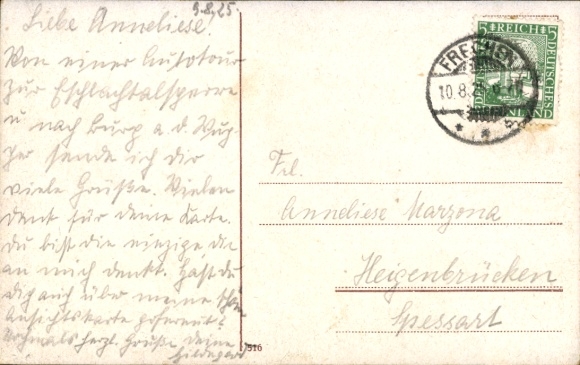 9.8.25.
Liebe Anneliese!
Von einer Autotour
zur Eschbachtalsperre
u nach Burg a. d. Wup-
per sende ich dir
viele Grüße. Vielen
Dank für deine Karte.
Du bist die einzige die
an mich denkt. Hast du
dich auch über meine schöne
Ansichtskarte gefreut?
Nochmals herzl. Grüße deine
Hildegard
516
5 REICH 5
DEUTSCHES
FRECHEN
10.8.
Frl.
Anneliese Marzona
Heigenbrücken
Spessart